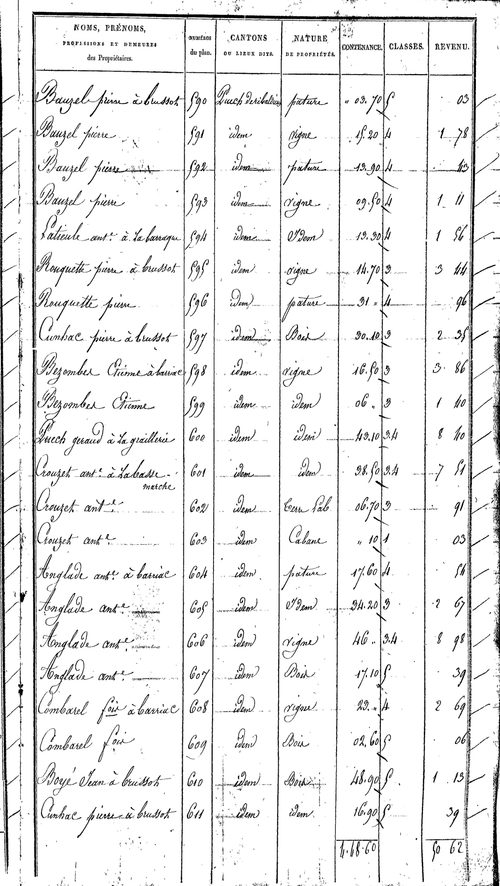 NOMS, PRÉNOMS, PROFESSIONS ET DEMEURES des Propriétaires. NUMÉROS du plan. CANTONS OU LIEUX DITS. NATURE DE PROPRIÉTÉS. CONTENANCE. CLASSES. REVENU.
Bauzel pierre à brussot 590 Puech de ribelteou pature " 03.70 5 03
Bauzel pierre 591 idem vigne 15.20 4 1 78
Bauzel pierre 592 idem pature 13.90 4 43
Bauzel pierre 593 idem vigne 09.50 4 1 11
antne à La barraque 594 idem Idem 13.30 4 1 56
Rouquette pierre à brussot 595 idem vigne 14.70 3 3 44
Rouquette pierre 596 idem pature 31 " 4 96
Cunhac pierre à brussot 597 idem Bois 30.10 3 2 35
Bezombes Etienne à barriac 598 idem vigne 16.50 3 3 86
Bezombes Etienne 599 idem idem 06 " 3 1 40
Puech geraud à La graillerie 600 idem idem 43.10 3.4 8 40
Crouzet antne à Labasse marche 601 idem idem 38.50 3.4 7 51
Crouzet antne 602 idem Terre Lab 06.70 3 91
Crouzet antne 603 idem Cabane " 10 1 03
Anglade antne à barriac 604 idem pature 17.60 4 56
Anglade antne 605 idem Idem 34.20 3 2 67
Anglade antne 606 idem vigne 46 " 3.4 8 98
Anglade antne 607 idem Bois 17.10 5 39
Combarel fois à barriac 608 idem vigne 23 " 4 2 69
Combarel fois 609 idem Bois 02.60 5 06
Boyé Jean à brussot 610 idem Bois 48.90 5 1 13
Cunhac pierre à brussot 611 idem idem 16.90 5 39
4.68.60 50 62